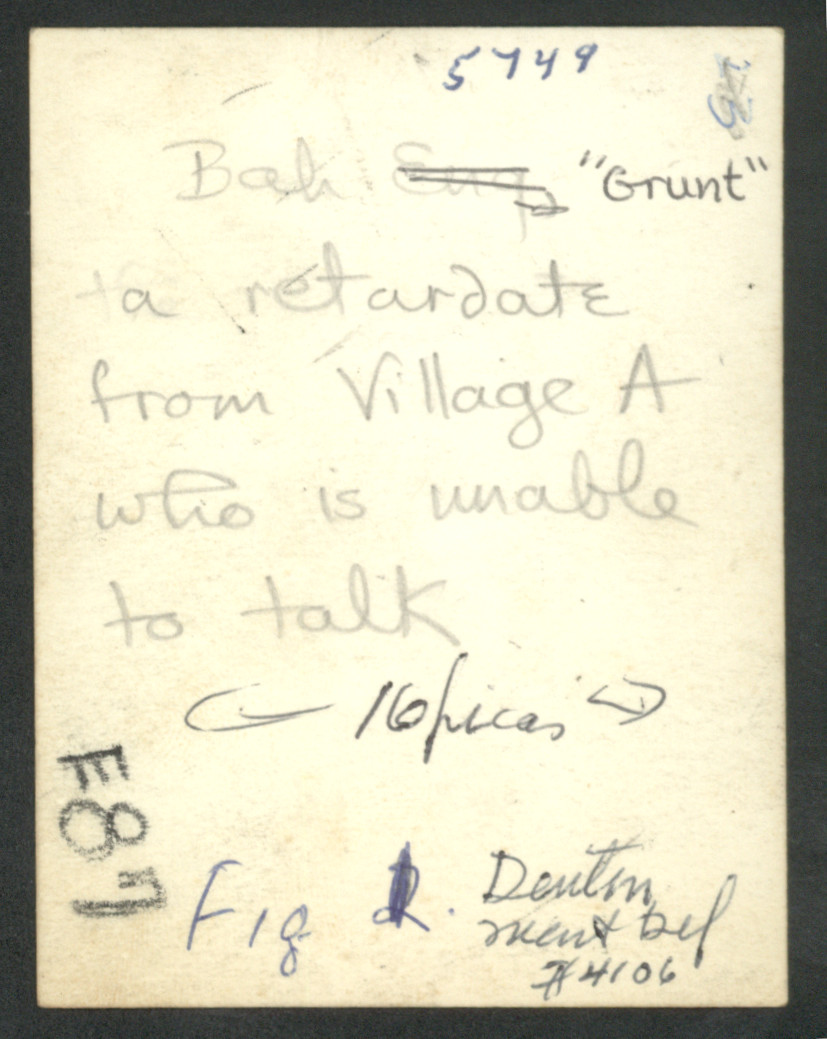 5749
Bah Eng "Grunt"
a retardate
from Village A
who is unable
to talk
16 picas
F87
Fig 2.
Denton
ment Def
#4106